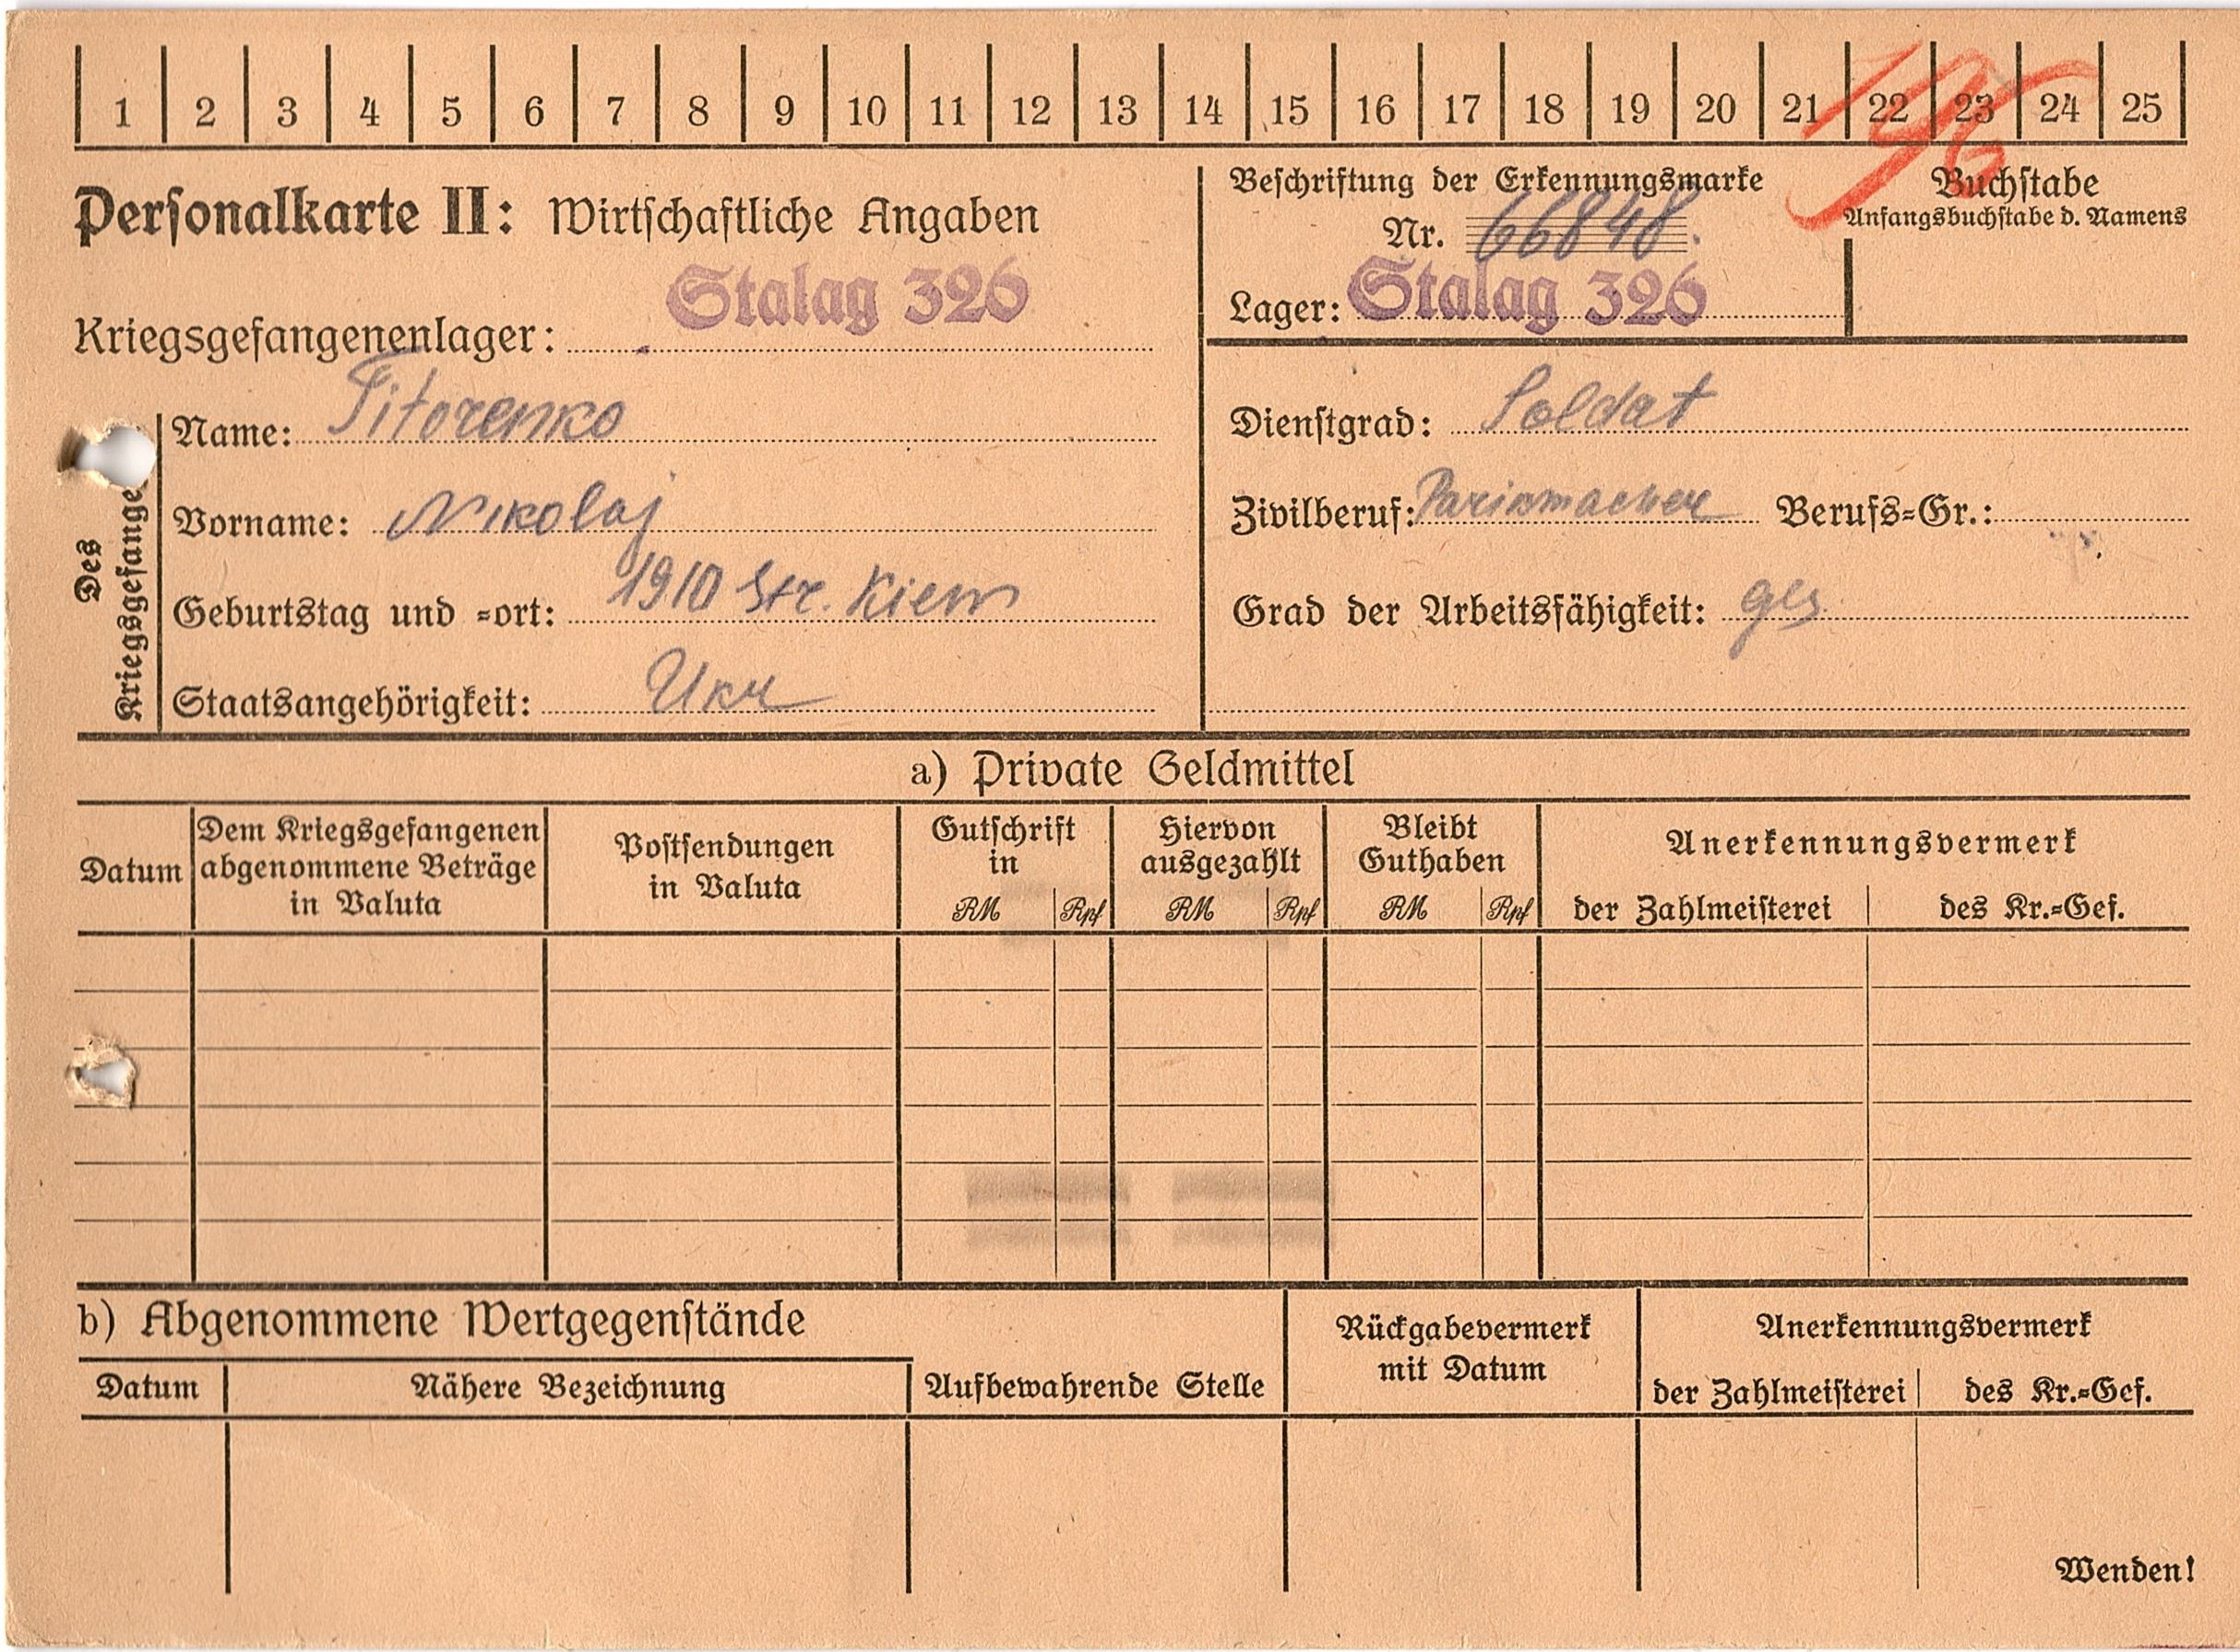 1 2 3 4 5 6 7 8 9 10 11 12 13 14 15 16 17 18 19 20 21 22 23 24 25
Personalkarte II: Wirtschaftliche Angaben
Stalag 326
Kriegsgefangenenlager:
Beschriftung der Erkennungsmarke
Nr. 66848.
Lager: Stalag 326
Buchstabe
Anfangsbuchstabe d. Namens
Des
Kriegsgefangenen
Name: Titorenko
Vorname: Nikolaj
Geburtstag und =ort: 1910 Str. Kiew
Staatsangehörigkeit: Ukr
Dienstgrad: Soldat
Zivilberuf: Berufs=Gr.:
Grad der Arbeitsfähigkeit: ges
a) Private Geldmittel
Datum
Dem Kriegsgefangenen
abgenommene Beträge
in Valuta
Postsendungen
in Valuta
Gutschrift
in
RM Rpf
Hiervon
ausgezahlt
RM Rpf
Bleibt
Guthaben
RM Rpf
Anerkennungsvermerk
der Zahlmeisterei des Kr.=Gef.
b) Abgenommene Wertgegenstände
Datum Nähere Bezeichnung
Aufbewahrende Stelle
Rückgabevermerk
mit Datum
Anerkennungsvermerk
der Zahlmeisterei des Kr.=Gef.
Wenden!